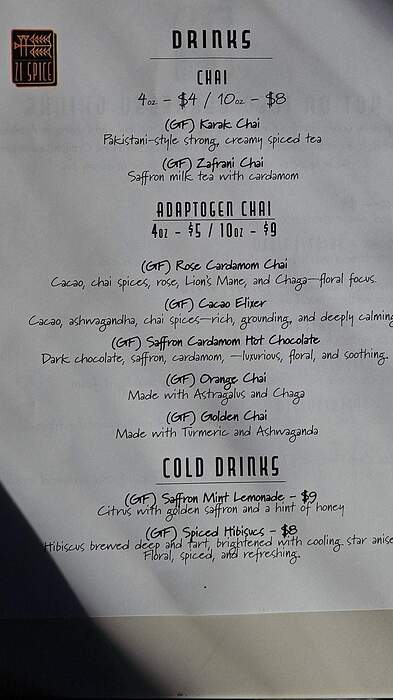 ZI SPICE
DRINKS
CHAI
4oz - $4 / 10oz - $8
(GF) Karak Chai
Pakistani-style strong, creamy spiced tea
(GF) Zafrani Chai
Saffron milk tea with cardamom
ADAPTOGEN CHAI
4oz - $5 / 10oz - $9
(GF) Rose Cardamom Chai
Cacao, chai spices, rose, Lion's Mane, and Chaga—floral focus.
(GF) Cacao Elixer
Cacao, ashwagandha, chai spices—rich, grounding, and deeply calming
(GF) Saffron Cardamom Hot Chocolate
Dark chocolate, saffron, cardamom, —luxurious, floral, and soothing.
(GF) Orange Chai
Made with Astragalus and Chaga
(GF) Golden Chai
Made with Turmeric and Ashwaganda
COLD DRINKS
(GF) Saffron Mint Lemonade - $9
Citrus with golden saffron and a hint of honey
(GF) Spiced Hibisucs - $8
Hibiscus brewed deep and tart, brightened with cooling star anise
Floral, spiced, and refreshing.